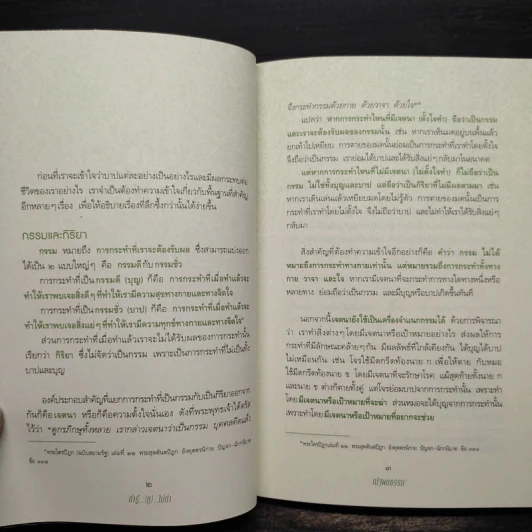 ก่อนที่เราจะเข้าใจว่าบาปแต่ละอย่างเป็นอย่างไรและมีผลกระทบต่อ
ชีวิตของเราอย่างไร เราจำเป็นต้องทำความเข้าใจเกี่ยวกับพื้นฐานที่สำคัญ
อีกหลายๆ เรื่อง เพื่อให้อธิบายเรื่องที่ลึกซึ้งกว่านั้นได้ง่ายขึ้น
กรรมและกิริยา
กรรม หมายถึง การกระทำที่เราจะต้องรับผล ซึ่งสามารถแบ่งออก
ได้เป็น ๒ แบบใหญ่ๆ คือ กรรมดีกับกรรมชั่ว
การกระทำที่เป็นกรรมดี (บุญ) คือ การกระทำที่เมื่อทำแล้วจะ
ทำให้เราพบเจอสิ่งดีๆ ที่ทำให้เรามีความสุขทางกายและทางจิตใจ
การกระทำที่เป็นกรรมชั่ว (บาป) คือ การกระทำที่เมื่อทำแล้วจะ
ทำให้เราพบเจอสิ่งแย่ๆ ที่ทำให้เรามีความทุกข์ทางกายและทางจิตใจ
ส่วนการกระทำที่เมื่อทำแล้วเราจะไม่ได้รับผลของการกระทำนั้น
เรียกว่า กิริยา ซึ่งไม่จัดว่าเป็นกรรม เพราะเป็นการกระทำที่ไม่เป็นทั้ง
บาปและบุญ
องค์ประกอบสำคัญที่แยกการกระทำที่เป็นกรรมกับเป็นกิริยาออกจาก
กันก็คือเจตนา หรือก็คือความตั้งใจนั่นเอง ดังที่พระพุทธเจ้าได้ตรัส
ไว้ว่า "ดูกรภิกษุทั้งหลาย เรากล่าวเจตนาว่าเป็นกรรม บุคคลคิดแล้ว
พระไตรปิฎก (ฉบับสยามรัฐ) เล่มที่ ๒๒ พระสุตตันตปิฎก อังคุตตรนิกาย ปัญจก-ฉักกนิบาต
ข้อ ๓๓๔
๒
จึงกระทำกรรมด้วยกาย ด้วยวาจา ด้วยใจ"
แปลว่า หากการกระทำไหนที่มีเจตนา (ตั้งใจทำ) ถือว่าเป็นกรรม
และเราจะต้องรับผลของกรรมนั้น เช่น หากเราเห็นมดอยู่บนพื้นแล้ว
ยกเท้าไปเหยียบ การตายของมดนั้นย่อมเป็นการกระทำที่เราทำโดยตั้งใจ
จึงถือว่าเป็นกรรม เราย่อมได้บาปและได้รับสิ่งแย่ๆ กลับมาในอนาคต
แต่หากการกระทำไหนที่ไม่มีเจตนา (ไม่ตั้งใจทำ) ก็ไม่ถือว่าเป็น
กรรม ไม่ใช่ทั้งบุญและบาป แต่ถือว่าเป็นกิริยาที่ไม่มีผลตามมา เช่น
หากเราเดินเล่นแล้วเหยียบมดโดยไม่รู้ตัว การตายของมดนั้นเป็นการ
กระทำที่เราทำโดยไม่ตั้งใจ จึงไม่ถือว่าบาป และไม่ทำให้เราได้รับสิ่งแย่ๆ
กลับมา
สิ่งสำคัญที่ต้องทำความเข้าใจอีกอย่างก็คือ คำว่า กรรม ไม่ได้
หมายถึงการกระทำทางกายเท่านั้น แต่หมายรวมถึงการกระทำทั้งทาง
กาย วาจา และใจ หากเรามีเจตนาที่จะกระทำการทางใดทางหนึ่งหรือ
หลายทาง ย่อมถือว่าเป็นกรรม และมีบุญหรือบาปเกิดขึ้นทันที
นอกจากนี้เจตนายังใช้เป็นเครื่องจำแนกกรรมได้ ด้วยการพิจารณา
ว่า เราทำสิ่งต่างๆ โดยมีเจตนาหรือเป้าหมายอย่างไร ส่งผลให้การ
กระทำที่มีลักษณะคล้ายๆ กัน มีผลลัพธ์ที่ใกล้เคียงกัน ได้บุญได้บาป
ไม่เหมือนกัน เช่น โจรใช้มีดกรีดท้องนาย ก เพื่อให้ตาย กับหมอ
ใช้มีดกรีดท้องนาย ข โดยมีเจตนาที่จะรักษาโรค แม้สุดท้ายทั้งนาย ก
และนาย ข ต่างก็ตายทั้งคู่ แต่โจรย่อมบาปจากการกระทำนั้น เพราะทำ
โดยมีเจตนาหรือเป้าหมายที่จะฆ่า ส่วนหมอจะได้บุญจากการกระทำนั้น
เพราะทำโดยมีเจตนาหรือเป้าหมายที่อยากจะช่วย
พระไตรปิฎกเล่มที่ ๒๒ พระสุตตันตปิฎก อังคุตตรนิกาย ปัญจก-ฉักกนิบาต
ข้อ ๓๓๔
๓